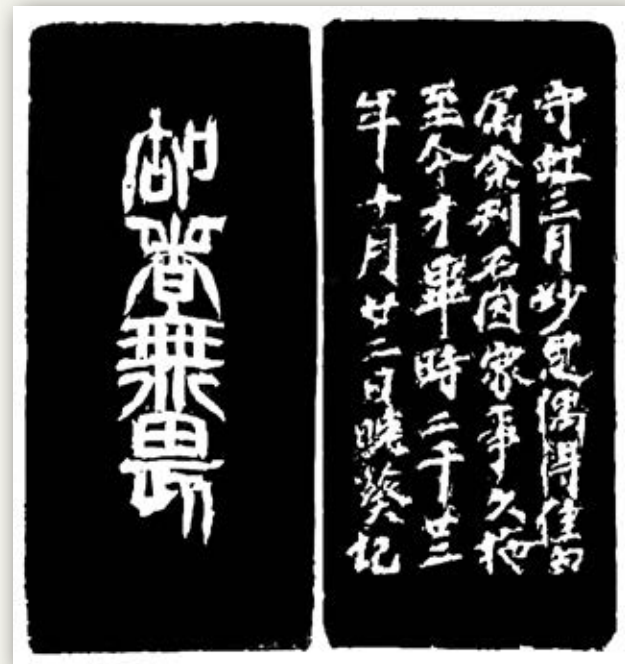 守虹三月妙思偶得佳句
属余刊石因家事久拖
至今才畢時二千廿三
年十月廿二日曉葵記
無畏